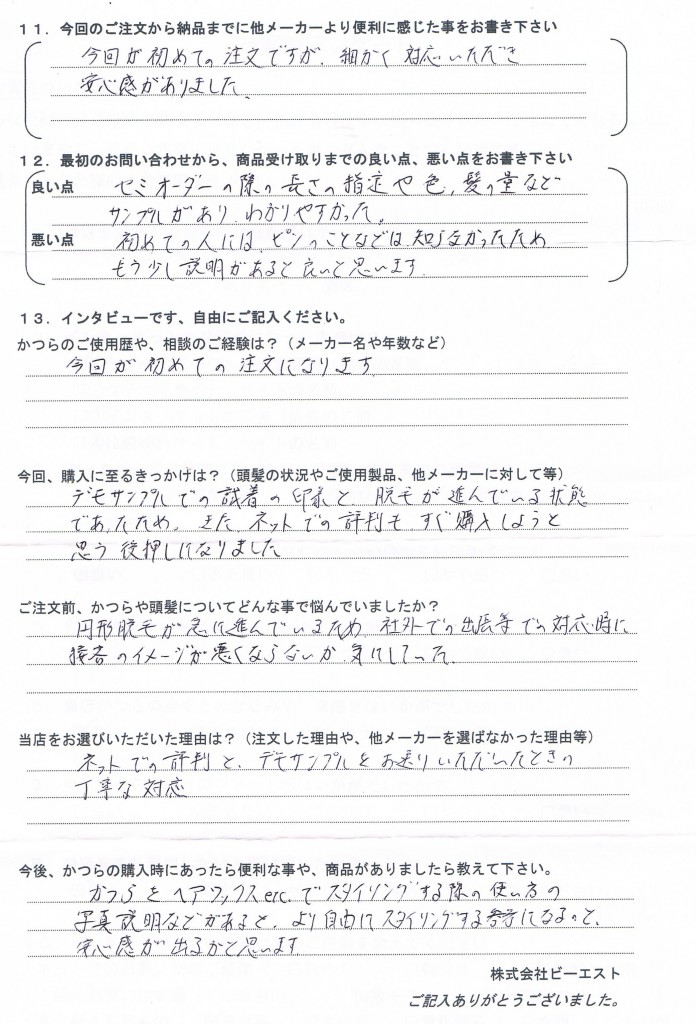 11．今回のご注文から納品までに他メーカーより便利に感じた事をお書き下さい
今回が初めての注文ですが、細かく対応いただき
安心感がありました。
12．最初のお問い合わせから、商品受け取りまでの良い点、悪い点をお書き下さい
良い点 セミオーダーの際の長さの指定や色，髪の量など
サンプルがあり、わかりやすかった。
悪い点 初めての人には、ピンのことなどは知らなかったため
もう少し説明があると良いと思います。
13．インタビューです、自由にご記入ください。
かつらのご使用歴や、相談のご経験は？（メーカー名や年数など）
今回が初めての注文になります
今回、購入に至るきっかけは？（頭髪の状況やご使用製品、他メーカーに対して等）
デモサンプルでの試着の印象と、脱毛が進んでいる状態
であったため。また、ネットでの評判も、すぐ購入しようと
思う後押しになりました
ご注文前、かつらや頭髪についてどんな事で悩んでいましたか？
円形脱毛が急に進んでいるため、社外での出張等での対応時に
接客のイメージが悪くならないか、気にしてった。
当店をお選びいただいた理由は？（注文した理由や、他メーカーを選ばなかった理由等）
ネットでの評判と、デモサンプルをお送りいただいたときの
丁寧な対応
今後、かつらの購入時にあったら便利な事や、商品がありましたら教えて下さい。
かつらをヘアワックスerc.でスタイリングする際の使い方の
写真説明などがあると、より自由にスタイリングする参考になるのと、
安心感が出るかと思います
株式会社ビーエスト
ご記入ありがとうございました。